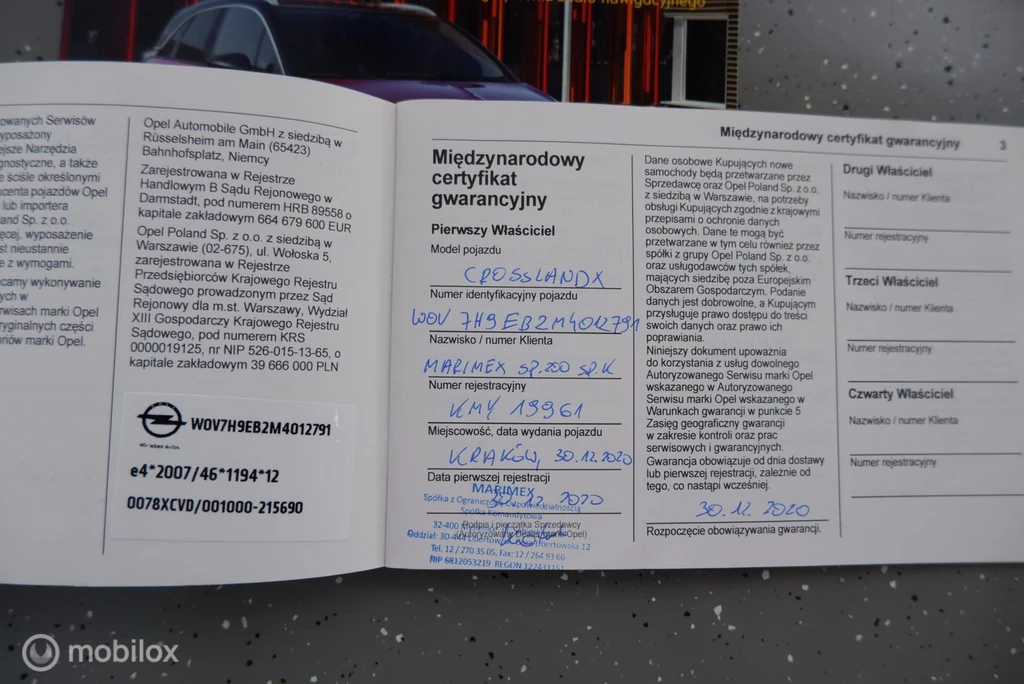 nawigacyjnego
owanych Serwisów
yposażony
ejsze Narzędzia
gnostyczne, a także
e ściśle określonymi
ucenta pojazdów Opel
lub importera
land Sp. z o.o.
ęcej, wyposażenie
st nieustannie
e z wymogami.
ecamy wykonywanie
ych w
rwisach marki Opel
ryginalnych części
onów marki Opel.
Opel Automobile GmbH z siedzibą w
Rüsselsheim am Main (65423)
Bahnhofsplatz, Niemcy
Zarejestrowana w Rejestrze
Handlowym B Sądu Rejonowego w
Darmstadt, pod numerem HRB 89558 o
kapitale zakładowym 664 679 600 EUR
Opel Poland Sp. z o.o. z siedzibą w
Warszawie (02-675), ul. Wołoska 5,
zarejestrowana w Rejestrze
Przedsiębiorców Krajowego Rejestru
Sądowego prowadzonym przez Sąd
Rejonowy dla m.st. Warszawy, Wydział
XIII Gospodarczy Krajowego Rejestru
Sądowego, pod numerem KRS
0000019125, nr NIP 526-015-13-65, o
kapitale zakładowym 39 666 000 PLN
W0V7H9EB2M4012791
wir leben Autos.
e4*2007/46*1194*12
0078XCVD/001000-215690
Międzynarodowy certyfikat gwarancyjny 3
Międzynarodowy
certyfikat
gwarancyjny
Pierwszy Właściciel
Model pojazdu
CROSSLAND X
Numer identyfikacyjny pojazdu
W0V 7H9EB2M4012791
Nazwisko / numer Klienta
MARIMEX SP. ZOO SP. K
Numer rejestracyjny
KMY 19961
Miejscowość, data wydania pojazdu
KRAKÓW, 30.12.2020
Data pierwszej rejestracji
30.12.2020
MARIMEX
Spółka z Ograniczoną Odpowiedzialnością
Spółka Komandytowa
Podpis i pieczątka Sprzedawcy
32-400
(Autoryzowany Dealer marki Opel)
Oddział: 30-444 Libertów, Libertowska 12
Tel. 12 / 270 35 05, Fax: 12 / 264 93 66
NIP 6812053219 REGON 122431151
Dane osobowe Kupujących nowe
samochody będą przetwarzane przez
Sprzedawcę oraz Opel Poland Sp. z o.o.
z siedzibą w Warszawie, na potrzeby
obsługi Kupujących zgodnie z krajowymi
przepisami o ochronie danych
osobowych. Dane te mogą być
przetwarzane w tym celu również przez
spółki z grupy Opel Poland Sp. z o.o.
oraz usługodawców tych spółek,
mających siedzibę poza Europejskim
Obszarem Gospodarczym. Podanie
danych jest dobrowolne, a Kupującym
przysługuje prawo dostępu do treści
swoich danych oraz prawo ich
poprawiania.
Niniejszy dokument upoważnia
do korzystania z usług dowolnego
Autoryzowanego Serwisu marki Opel
wskazanego w Autoryzowanego
Serwisu marki Opel wskazanego w
Warunkach gwarancji w punkcie 5
Zasięg geograficzny gwarancji
w zakresie kontroli oraz prac
serwisowych i gwarancyjnych.
Gwarancja obowiązuje od dnia dostawy
lub pierwszej rejestracji, zależnie od
tego, co nastąpi wcześniej.
30.12.2020
Rozpoczęcie obowiązywania gwarancji.
Drugi Właściciel
Nazwisko / numer Klienta
Numer rejestracyjny
Trzeci Właściciel
Nazwisko / numer Klienta
Numer rejestracyjny
Czwarty Właściciel
Nazwisko / numer Klienta
Numer rejestracyjny
mobilox